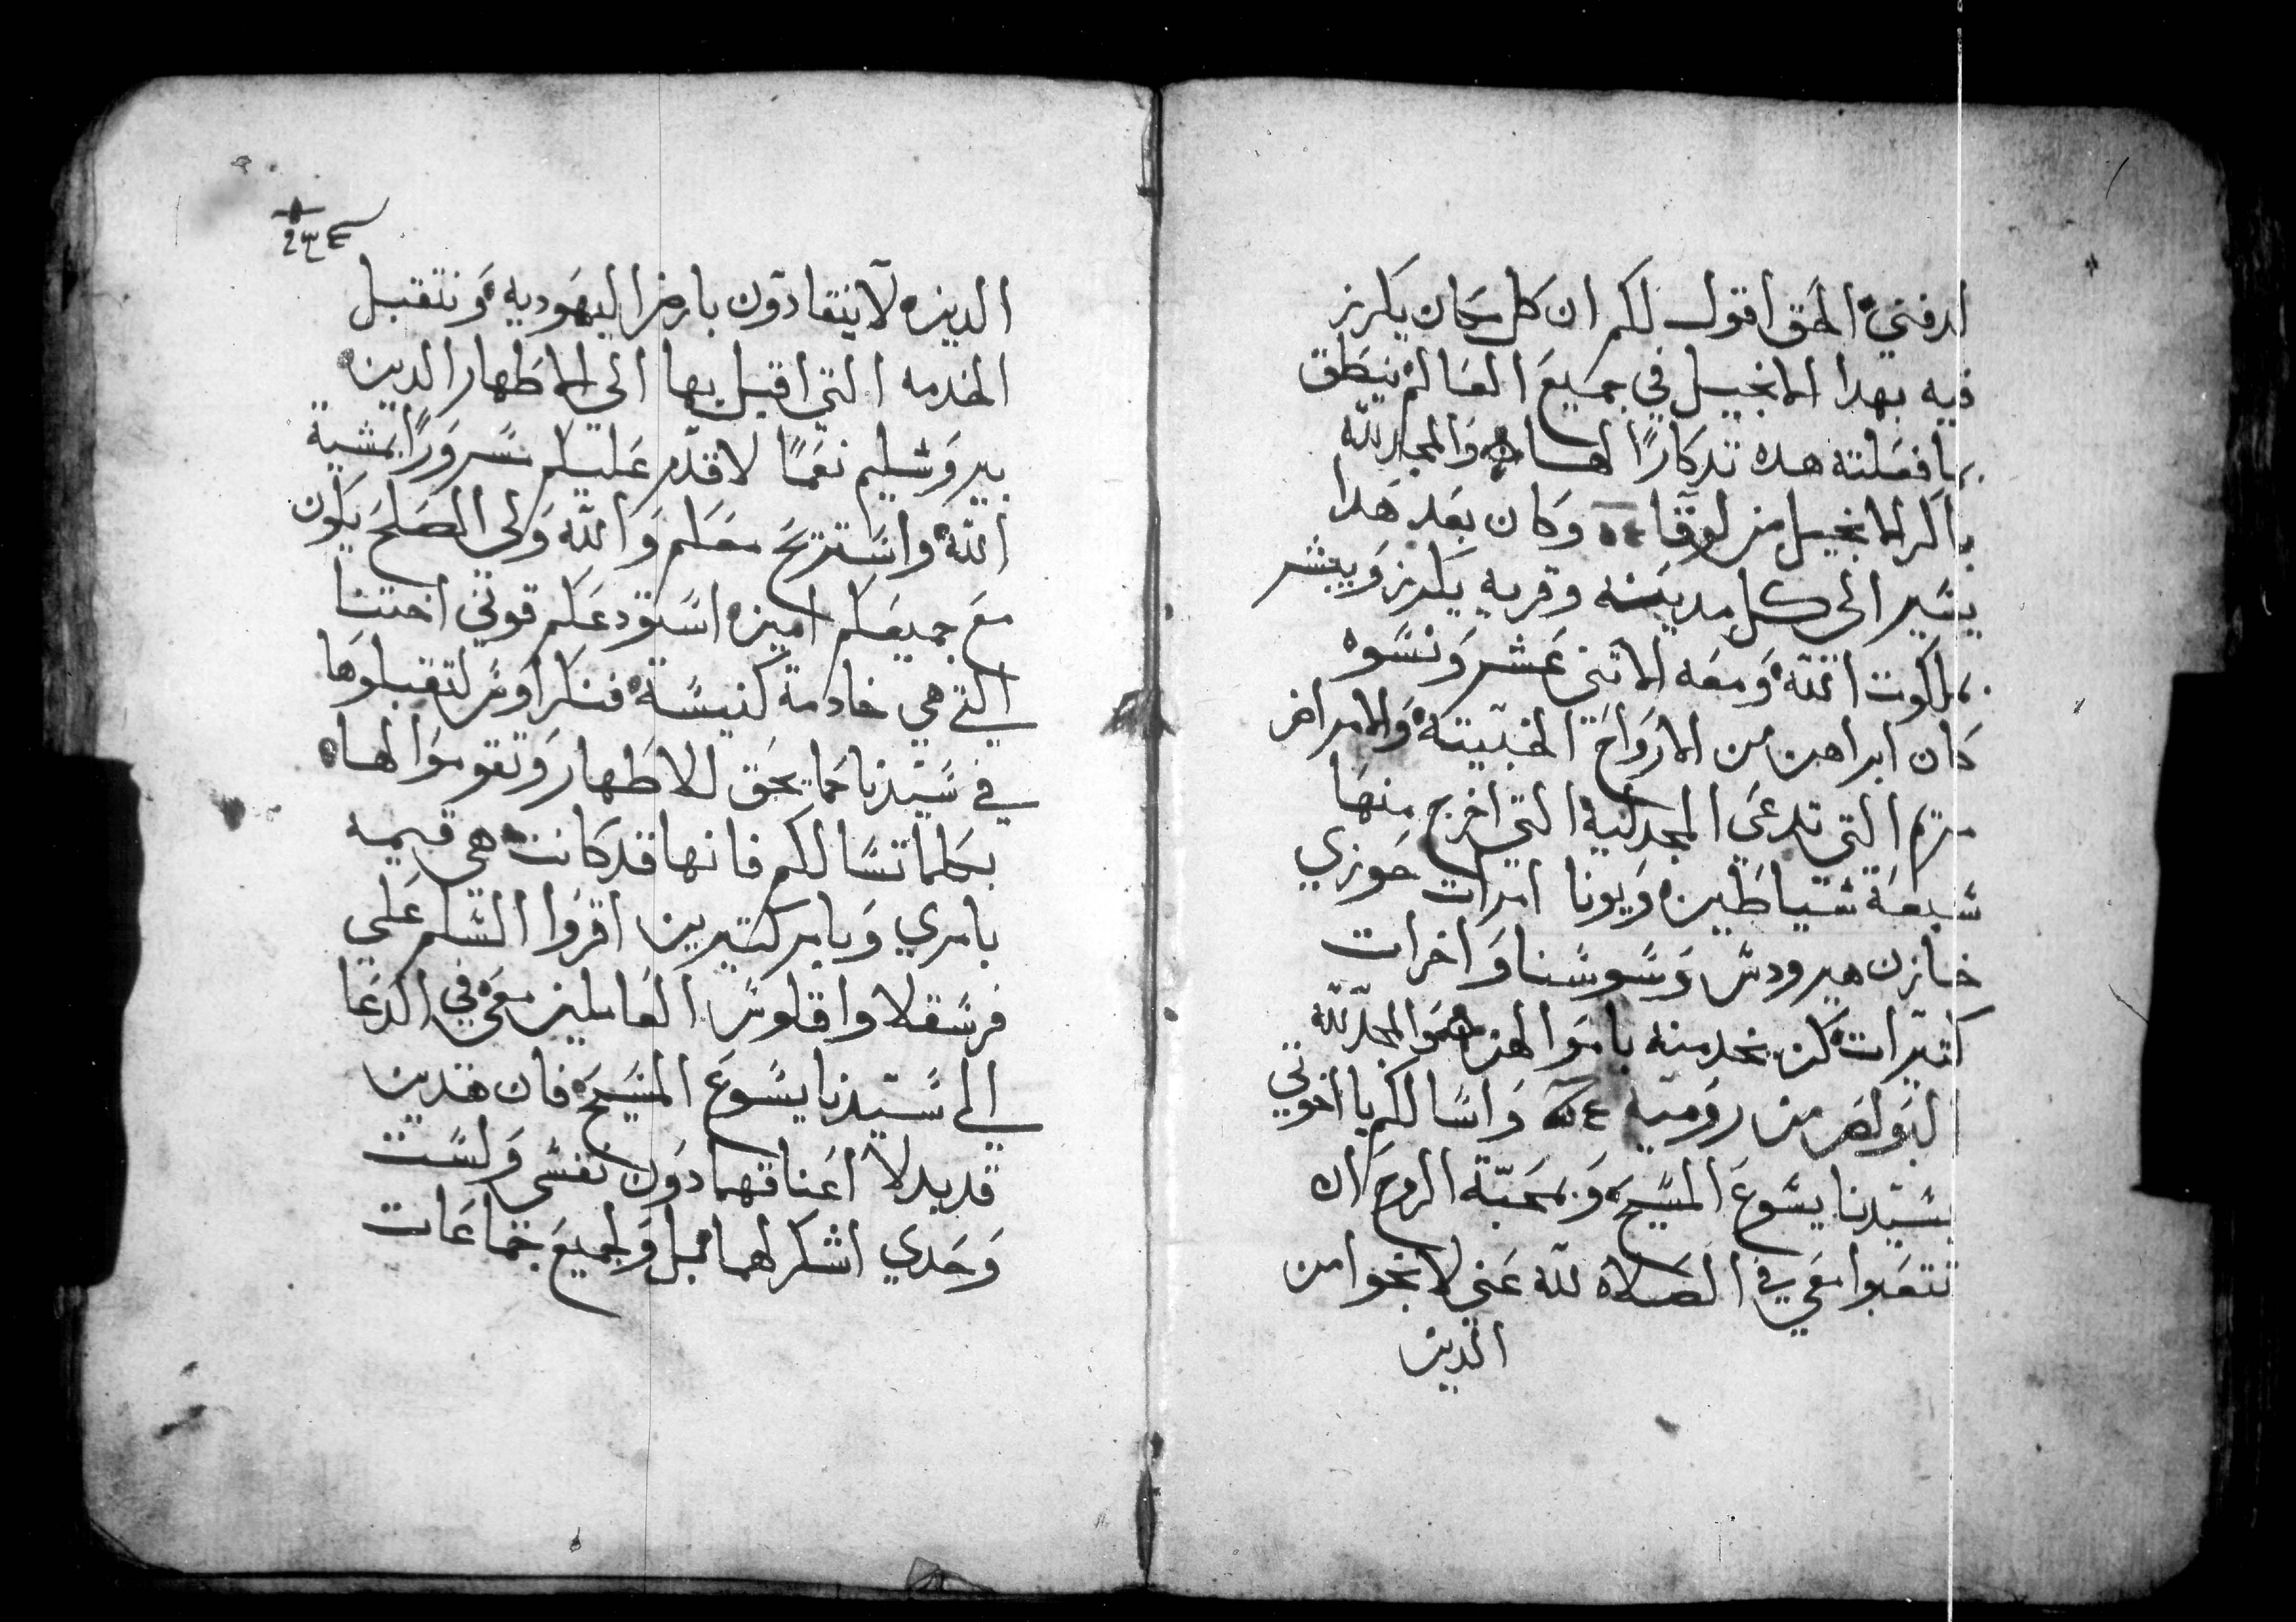 لدفني الحق اقول لكم ان كل مكان يكرز
فيه بهدا الانجيل في جميع العالم ينطق
بما فعلته هده تدكارًا لها والمجد لله
باكر الانجيل من لوقا وكان بعد هدا
يسير الى كل مدينه وقريه يكرز ويبشر
بملكوت الله ومعه الاتنى عشر ونسوه
كان ابراهن من الارواح الخبيته والامراض
مريم التي تدعى المجدلية التي اخرج منها
سبعة شياطين ويونا امرات حوزي
خازن هيرودس وسوسنا واخرات
كتيرات كن يخدمنه باموالهن والمجد لله
البولص من رومية واسالكم يا اخوتي
بسيدنا يسوع المسيح وبمحبة الروح ان
تتعبوا معي في الصلاه لله عني لانجوا من
الدين
الدين لا ينقادون بارض اليهوديه ونتقبل
الخدمه التي اقبل بها الى الاطهار الدين
بيروشليم نعمًا لاقدم عليكم مسرورًا بمشية
الله واستريح معكم والله ولي الصلح يكون
مع جميعكم امين استودعكم قوني اختنا
التي هي خادمة كنيسة فنكراوس لتقبلوها
في سيدنا كما يحق للاطهار وتقوموا لها
بكلما تسالكم فانها قد كانت هي قيمه
بامري وبامر كتيرين اقروا السلم على
فرسقلا واقلوس العاملين معي في الدعا
الى سيدنا يسوع المسيح فان هدين
قد بدلا اعناقهما دون نفسي ولست
وحدي اشكرلهما بل ولجميع جماعات